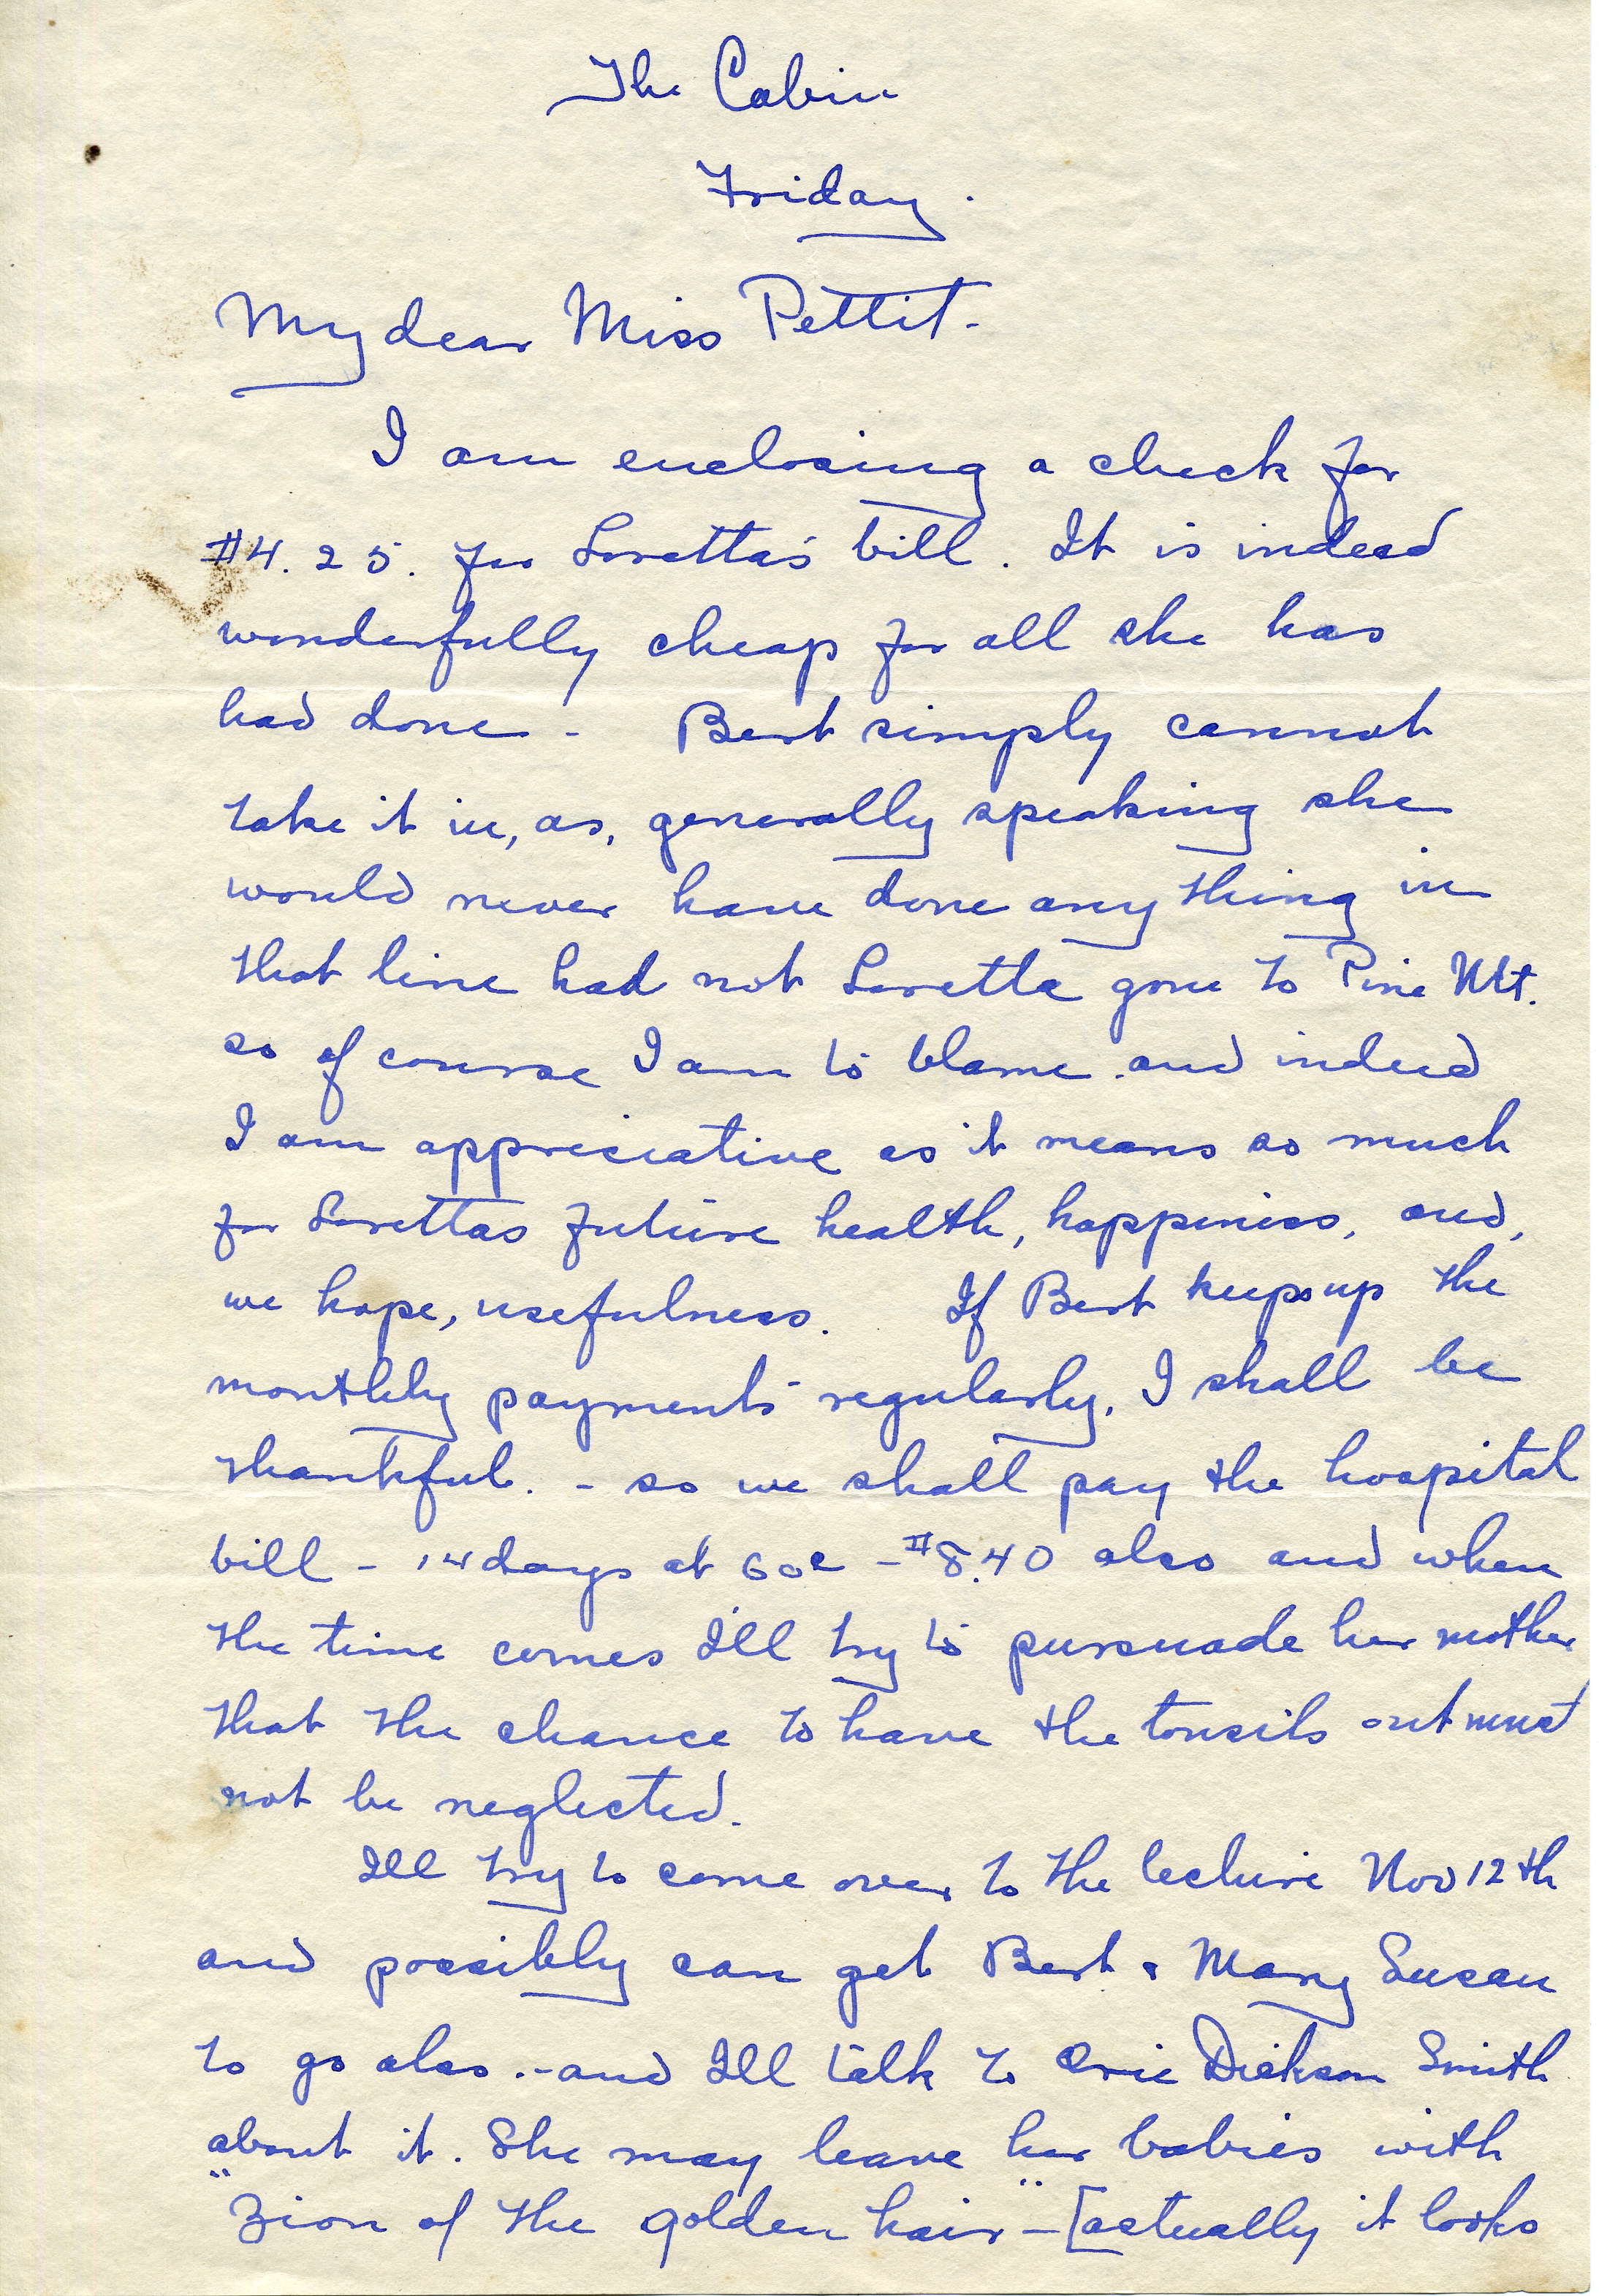 The Cabin
Friday.
My dear Miss Pettit-
I am enclosing a check for
$4.25. for Loretta's bill. It is indeed
wonderfully cheap for all she has
had done - Bert simply cannot
take it in, as, generally speaking she
would never have done any thing in
that line had not Loretta gone to Pine Mt.
so of course I am to blame and indeed
I am appreciative as it means so much
for Lorettas future health, happiness, and,
we hope, usefulness. If Bert keeps up the
monthly payments regularly, I shall be
thankful. - so we shall pay the hospital
bill - 14 days at 60c - $8.40 also and when
the time comes I'll try to pursuade her mother
that the chance to have the tonsils out must
not be neglected.
Ill try to come over to the lecture Nov 12th
and possibly can get Bert & Mary Susan
to go also. - and Ill talk to Orie Dickson Smith
about it. She may leave her babies with
"Zion of the golden hair" - [actually it looks